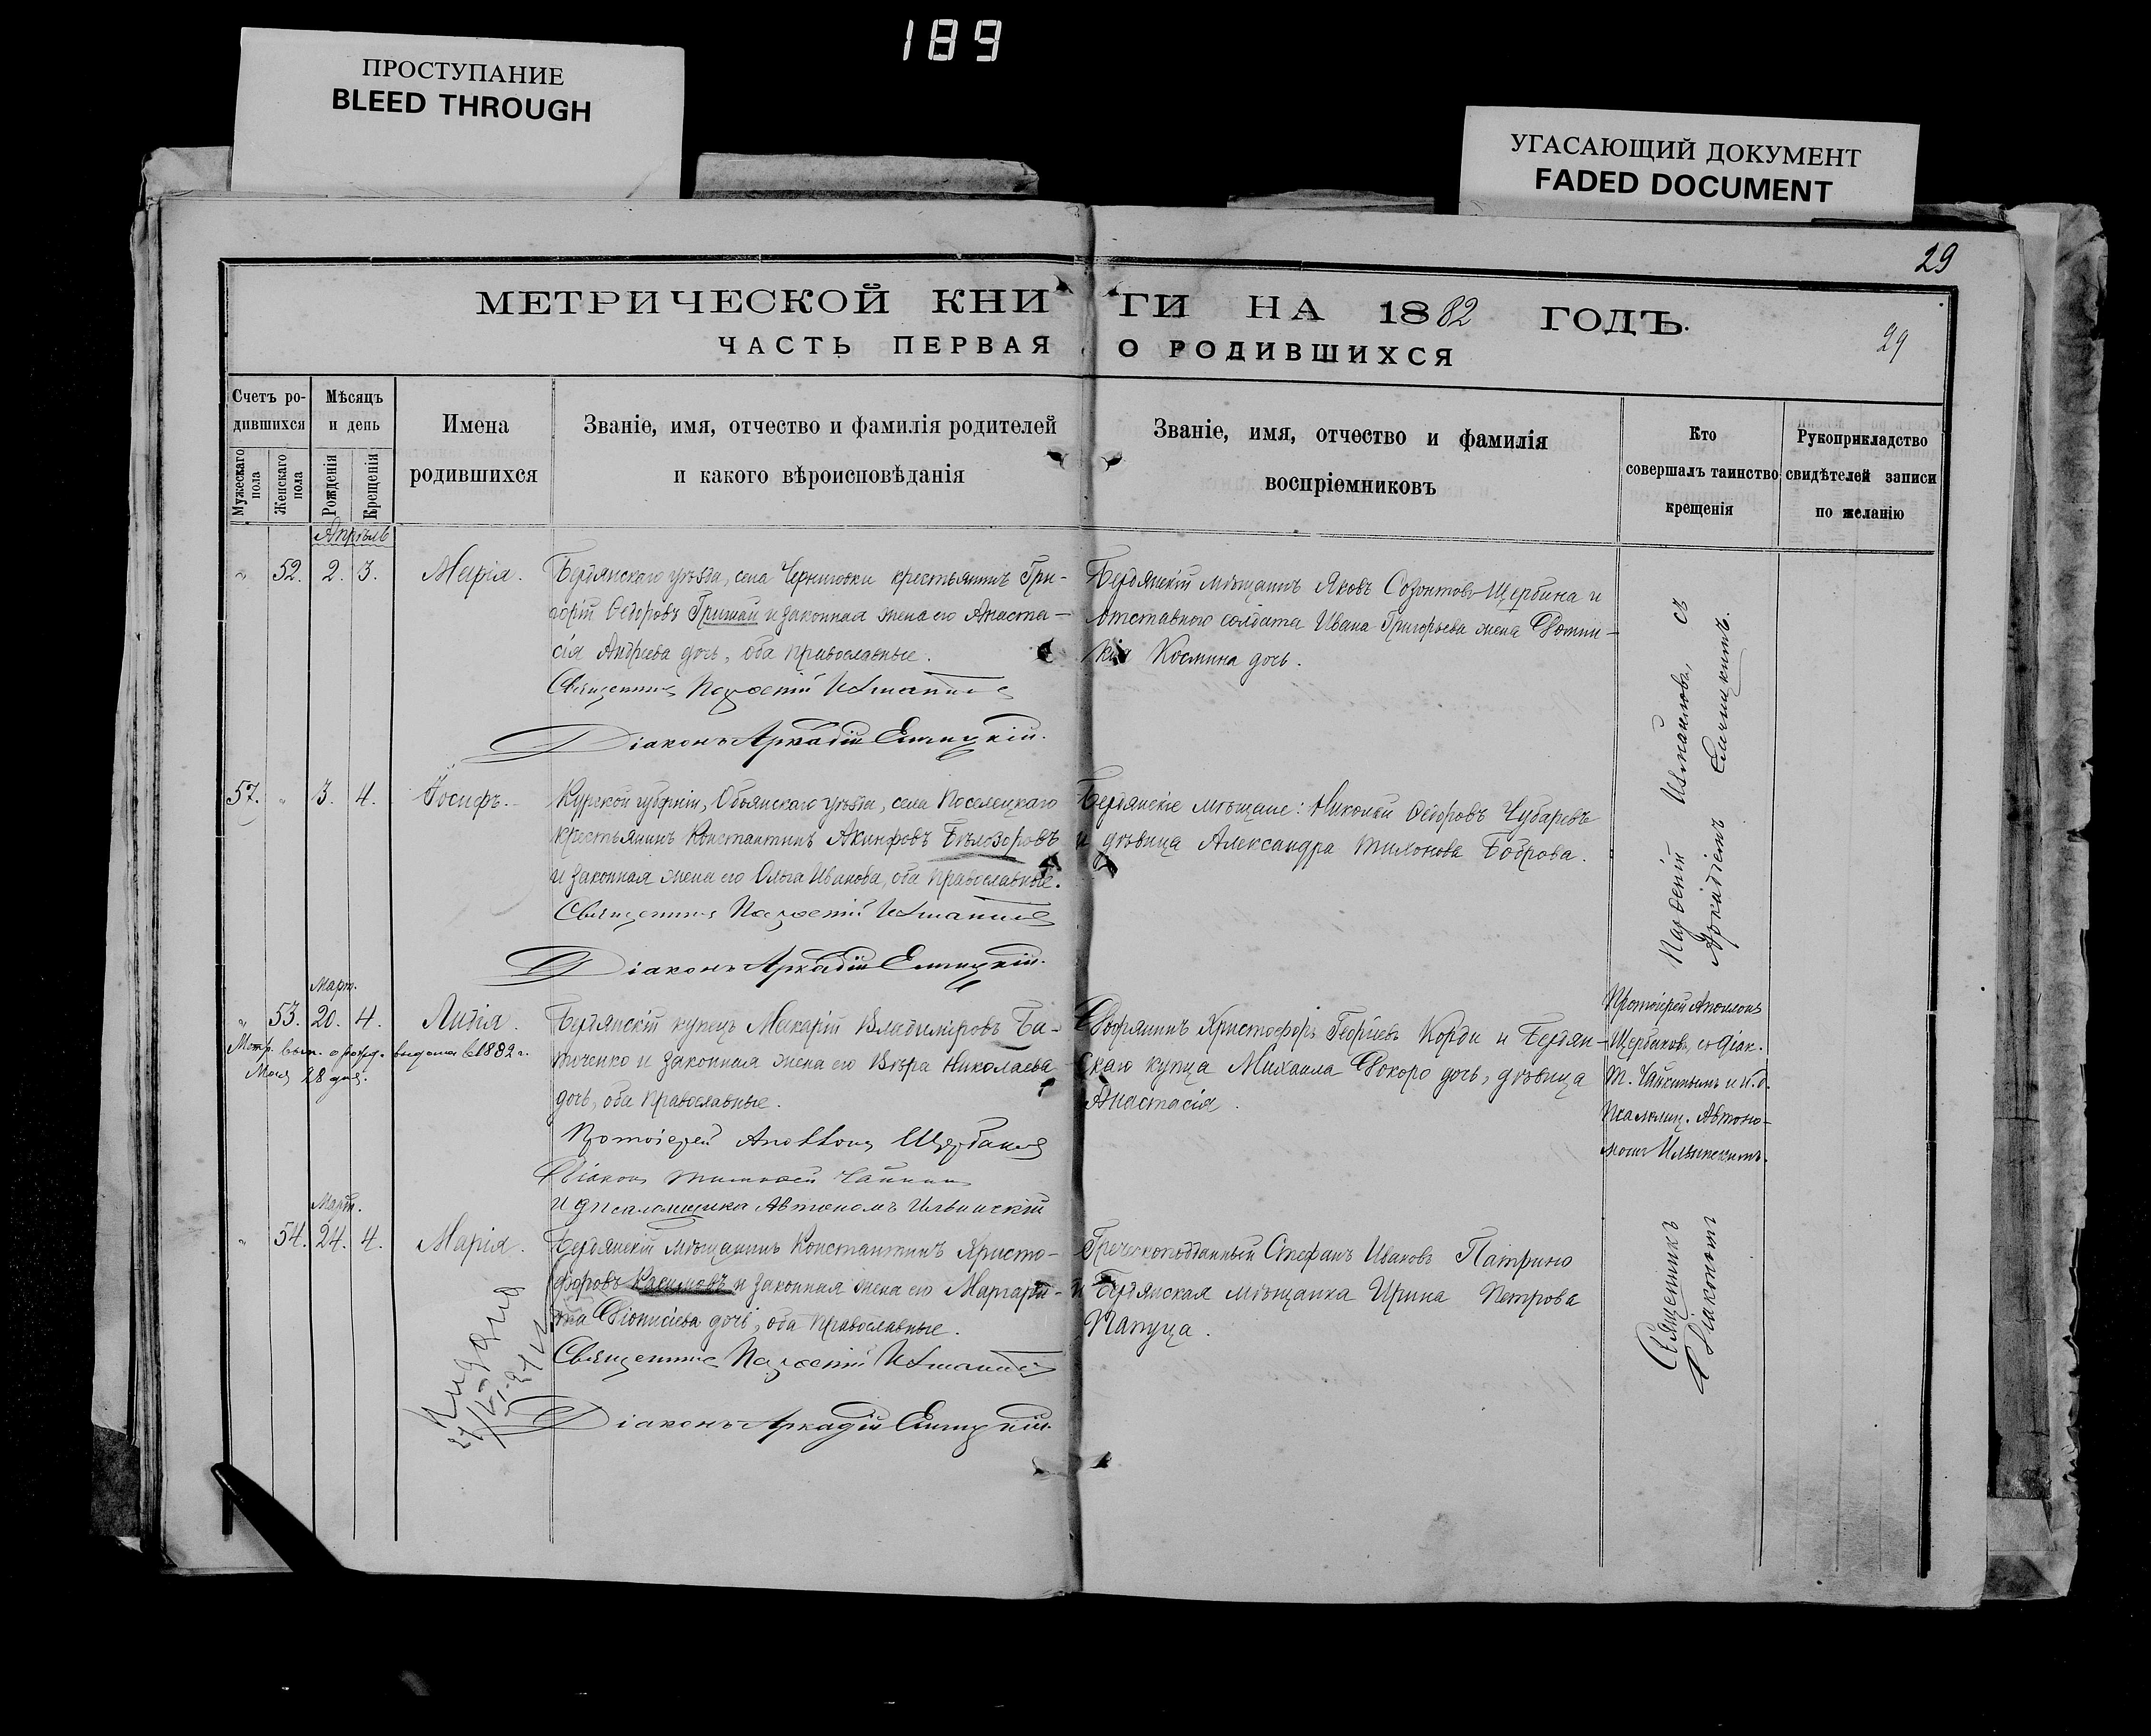 189
ПРОСТУПАНИЕ
BLEED THROUGH
УГАСАЮЩИЙ ДОКУМЕНТ
FADED DOCUMENT
29
29
МЕТРИЧЕСКОЙ КНИГИ НА 1882 ГОДЪ.
ЧАСТЬ ПЕРВАЯ О РОДИВШИХСЯ
Счетъ родившихся
Мужескаго пола
Женскаго пола
Мѣсяцъ и день
Рожденія
Крещенія
Имена
родившихся
Званіе, имя, отчество и фамилія родителей
и какого вѣроисповѣданія
Званіе, имя, отчество и фамилія
воспріемниковъ
Кто
совершалъ таинство
крещенія
Рукоприкладство
свидѣтелей записи
по желанію
Апрѣль
" 52. 2. 3. Марія.
Бердянскаго уѣзда, села Черниговки крестьянинъ Гри-
горій Ѳедоровъ Гришай и законная жена его Анаста-
сія Андреева дочь, оба православные.
Священникъ Парѳеній
Діаконъ Аркадій
Бердянскій мѣщанинъ Яковъ Созонтовъ Щербина и
отставного солдата Ивана Григорьева жена Домни-
кія Космина дочь.
57. " 3. 4. Іосифъ.
Курской губерніи, Обоянскаго уѣзда, села Поселецкаго
крестьянинъ Константинъ Акинфовъ Бѣлозоровъ
и законная жена его Ольга Иванова, оба православные.
Священникъ Парѳеній
Діаконъ Аркадій
Бердянскіе мѣщане: Николай Ѳедоровъ Чубаревъ
и дѣвица Александра Тихонова Боброва.
Парѳеній съ
Аркадіемъ
Март.
" 53. 20. 4. Лидія.
Метр. вып. о рожд. выдана въ 1882 г.
Мая 28 дня.
Бердянскій купецъ Макарій Владиміровъ Ба-
тоженко и законная жена его Вѣра Николаева
дочь, оба православные.
Протоіерей Аполлонъ Щербаковъ
Діаконъ Тимоѳей Чайкинъ
И д псаломщика Автономъ Ильинскій
Дворянинъ Христофоръ Георгіевъ Корди и Бердян-
скаго купца Михаила Докоро дочь, дѣвица
Анастасія.
Протоіерей Аполлонъ
Щербаковъ, съ діак.
Т. Чайкинымъ и и.д.
Псаломщ. Автоно-
момъ Ильинскимъ.
Март.
" 54. 24. 4. Марія.
Бердянскій мѣщанинъ Константинъ Христо-
форовъ и законная жена его Маргари-
та Діонисіева дочь, оба православные.
Священникъ Парѳеній
Діаконъ Аркадій
Греческоподданный Стефанъ Ивановъ Патрино
и Бердянская мѣщанка Ирина Петрова
Папуца.
Священникъ
Діакономъ